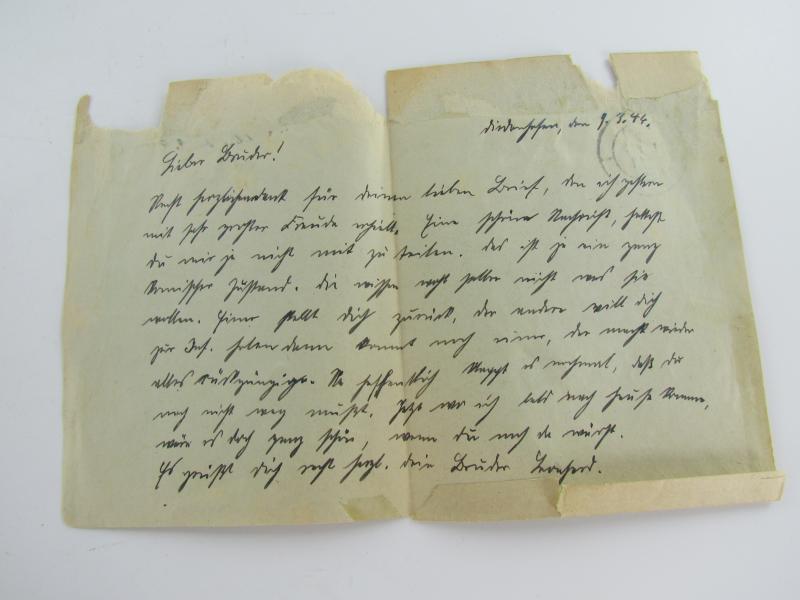 Diedenhofen, den 9.3.44.
Lieber Bruder!
Recht herzlichen dank für deinen lieben Brief, den ich gestern
mit sehr großer Freude erhielt. Eine schöne Nachricht, hattest
du mir ja nicht mit zu teilen. das ist ja ein ganz
komischer Zustand. die wissen wohl selber nicht was sie
wollen. Einer stellt dich zurück, der andere will dich
zur Inf. holen dann kommt noch einer, der macht wieder
alles rückgängig. Na hoffentlich klappt es nochmal, daß du
noch nicht weg mußt. Jetzt wo ich bald nach hause komme,
wäre es doch ganz schön, wenn du noch da wärst.
Es grüßt dich recht herzl. dein Bruder Leonhard.